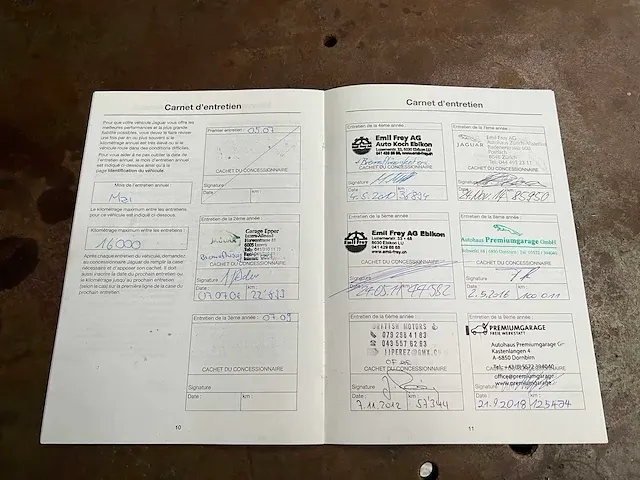 Carnet d'entretien
Pour que votre véhicule Jaguar vous offre les
meilleures performances et la plus grande
fiabilité possibles, vous devez le faire réviser
une fois par an ou plus souvent si le
kilométrage annuel est très élevé ou si le
véhicule roule dans des conditions difficiles.
Pour vous aider à ne pas oublier la date de
l'entretien annuel, le mois d'entretien annuel
est indiqué ci-dessous ainsi qu'à la
page Identification du véhicule.
Mois de l'entretien annuel
Mai
Le kilométrage maximum entre les entretiens
pour ce véhicule est indiqué ci-dessous.
Kilométrage maximum entre les entretiens
16000
Après chaque entretien du véhicule, demandez
au concessionnaire Jaguar de remplir la case
nécessaire et d'apposer son cachet. Il doit
aussi inscrire la date du prochain entretien ou
le kilométrage jusqu'au prochain entretien
(selon le cas) sur la première ligne de la case du
prochain entretien.
Premier entretien : 05.07
CACHET DU CONCESSIONNAIRE
Signature
Date : km :
Entretien de la 2ème année :
JAGUAR Garage Epper
CACHET DU CONCESSIONNAIRE
Signature
Date : km :
Entretien de la 3ème année : 07.09
CACHET DU CONCESSIONNAIRE
Signature
Date : km :
10
Carnet d'entretien
Entretien de la 4ème année :
Emil Frey AG
Auto Koch Ebikon
CACHET DU CONCESSIONNAIRE
Signature
Date : km :
4.5.2010
Entretien de la 7ème année :
JAGUAR
Emil Frey AG
8048 Zürich
CACHET DU CONCESSIONNAIRE
Signature
Date : km :
85950
Entretien de la 5ème année :
Emil Frey AG Ebikon
Luzernerstr. 33 + 48
6030 Ebikon LU
www.emil-frey.ch
CACHET DU CONCESSIONNAIRE
Signature
Date : km :
24.05.11 44'582
Entretien de la 8ème année :
Autohaus Premiumgarage GmbH
CACHET DU CONCESSIONNAIRE
Signature
Date : km :
2.5.2016 100 011
Entretien de la 6ème année :
BRITISH MOTORS
079 208 41 83
043 557 62 63
CACHET DU CONCESSIONNAIRE
Signature
Date : km :
7.11.2012 57'344
PREMIUMGARAGE
FREIE WERKSTATT
Autohaus Premiumgarage G
Kastenlangen 4
A-6850 Dornbirn
office@premiumgarage
www.premiumgarage
Signature
Date : km :
21.9.2018 125474
11